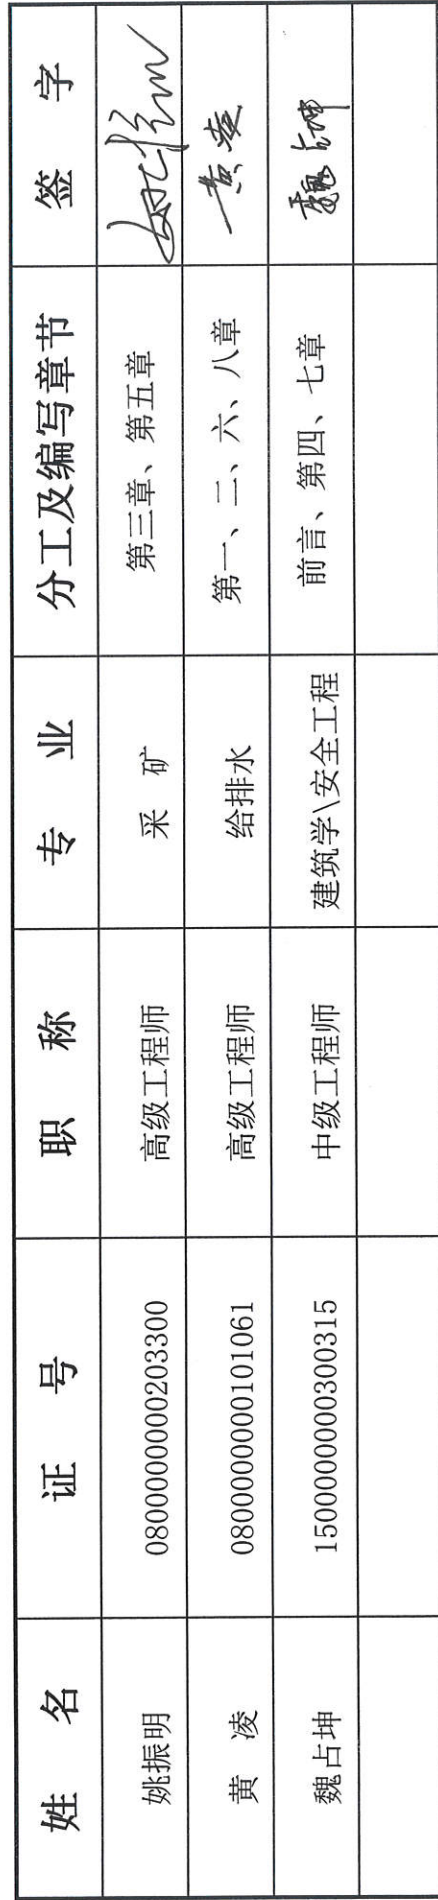 姓 名 证 号 职 称 专 业 分工及编写章节 签 字
姚振明 0800000000203300 高级工程师 采 矿 第三章、第五章 姚振明
黄 凌 0800000000101061 高级工程师 给排水 第一、二、六、八章 黄凌
魏占坤 1500000000300315 中级工程师 建筑学\安全工程 前言、第四、七章 魏占坤